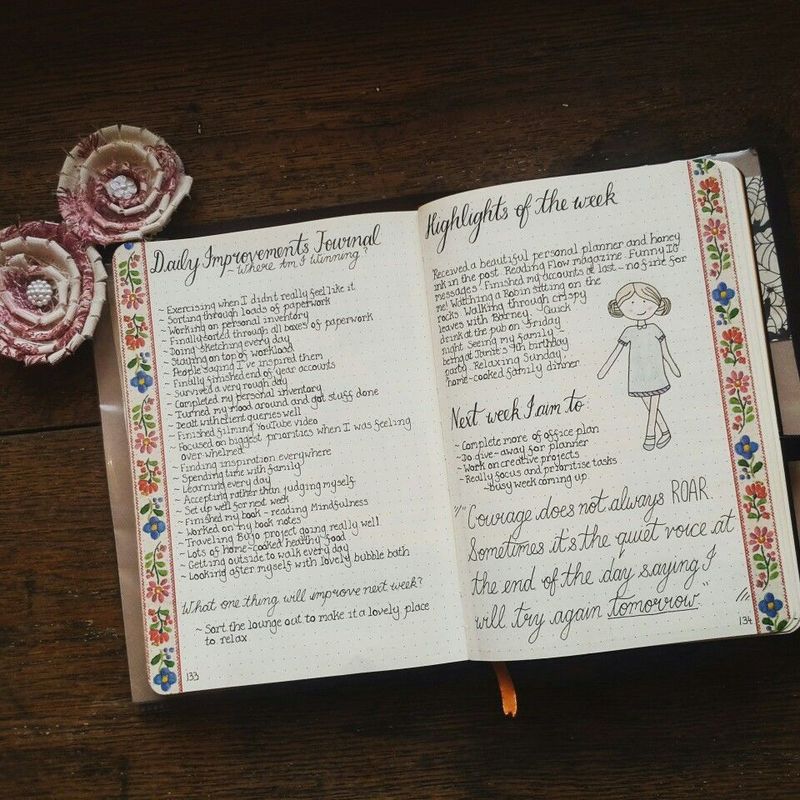 Daily Improvements Journal
~ Where Am I Winning?
~ Exercising when I didnt really feel like it
~ Sorting through loads of paperwork
~ Working on personal inventory
~ Finally sorted through all boxes of paperwork
~ Doing sketching every day
~ Staying on top of workload
~ People saying I've inspired them
~ Finally finished end of year accounts
~ Survived a very rough day
~ Completed my personal inventory
~ Turned my mood around and got stuff done
~ Dealt with client queries well
~ Finished filming YouTube video
~ Focused on biggest priorities when I was feeling
over whelmed
~ Finding inspiration everywhere
~ Spending time with family
~ Learning every day
~ Accepting rather than judging myself
~ Set up well for next week
~ Finished my book - reading Mindfulness
~ Worked on my book notes
~ Traveling BuJo project going really well
~ Lots of home-cooked healthy food
~ Getting outside to walk every day
~ Looking after myself with lovely bubble bath
What one thing will improve next week?
~ Sort the lounge out to make it a lovely place
to relax
133
Highlights of the week
Received a beautiful personal planner and honey
ink in the post. Reading Flow magazine. Funny IG
messages! Finished my accounts at last ~ no fine for
me! Watching a Robin sitting on the
rocks. Walking through crispy
leaves with Barney. Quick
drink at the pub on friday
night. Seeing my family
being at 9th birthday
party. Relaxing Sunday,
home-cooked family dinner
Next week I aim to
~ Complete more of office plan
~ Do give-away for planner
~ Work on creative projects
~ Really focus and prioritise tasks
~ Busy week coming up
"Courage does not always ROAR.
Sometimes it's the quiet voice at
the end of the day saying I
will try again tomorrow."
134